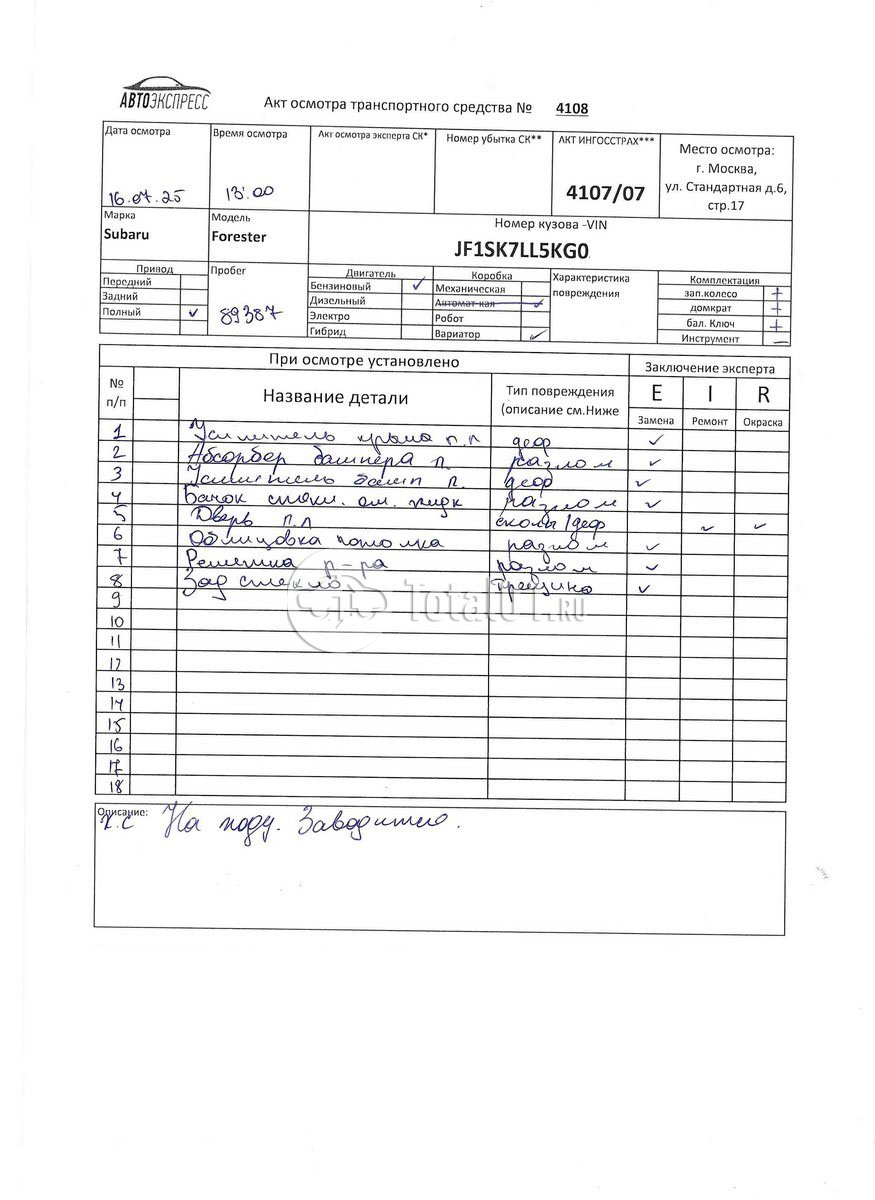 АВТОЭКСПРЕСС
Акт осмотра транспортного средства № 4108
Дата осмотра
16.07.25
Время осмотра
13:00
Акт осмотра эксперта СК*
Номер убытка СК**
АКТ ИНГОССТРАХ***
4107/07
Место осмотра:
г. Москва,
ул. Стандартная д.6,
стр.17
Марка
Subaru
Модель
Forester
Номер кузова -VIN
JF1SK7LL5KG0
Привод
Передний
Задний
Полный ✓
Пробег
89387
Двигатель
Бензиновый ✓
Дизельный
Электро
Гибрид
Коробка
Механическая
Автомат-кая ✓
Робот
Вариатор ✓
Характеристика
повреждения
Комплектация
зап.колесо +
домкрат +
бал. Ключ +
Инструмент —
При осмотре установлено
Заключение эксперта
№
п/п
Название детали
Тип повреждения
(описание см.Ниже
E I R
Замена Ремонт Окраска
1 Усилитель крыла п.л деф ✓
2 Абсорбер бампера п. разлом ✓
3 Усилитель бамп п. деф ✓
4 Бачок стекл. ом. жидк разлом ✓
5 Дверь п.л сколы/деф ✓ ✓
6 Облицовка потолка разлом ✓
7 Решетка р-ра разлом ✓
8 Зад стекло трещина ✓
9
10
11
12
13
14
15
16
17
18
Описание:
т.с На ходу. Заводится.
Total01.RU